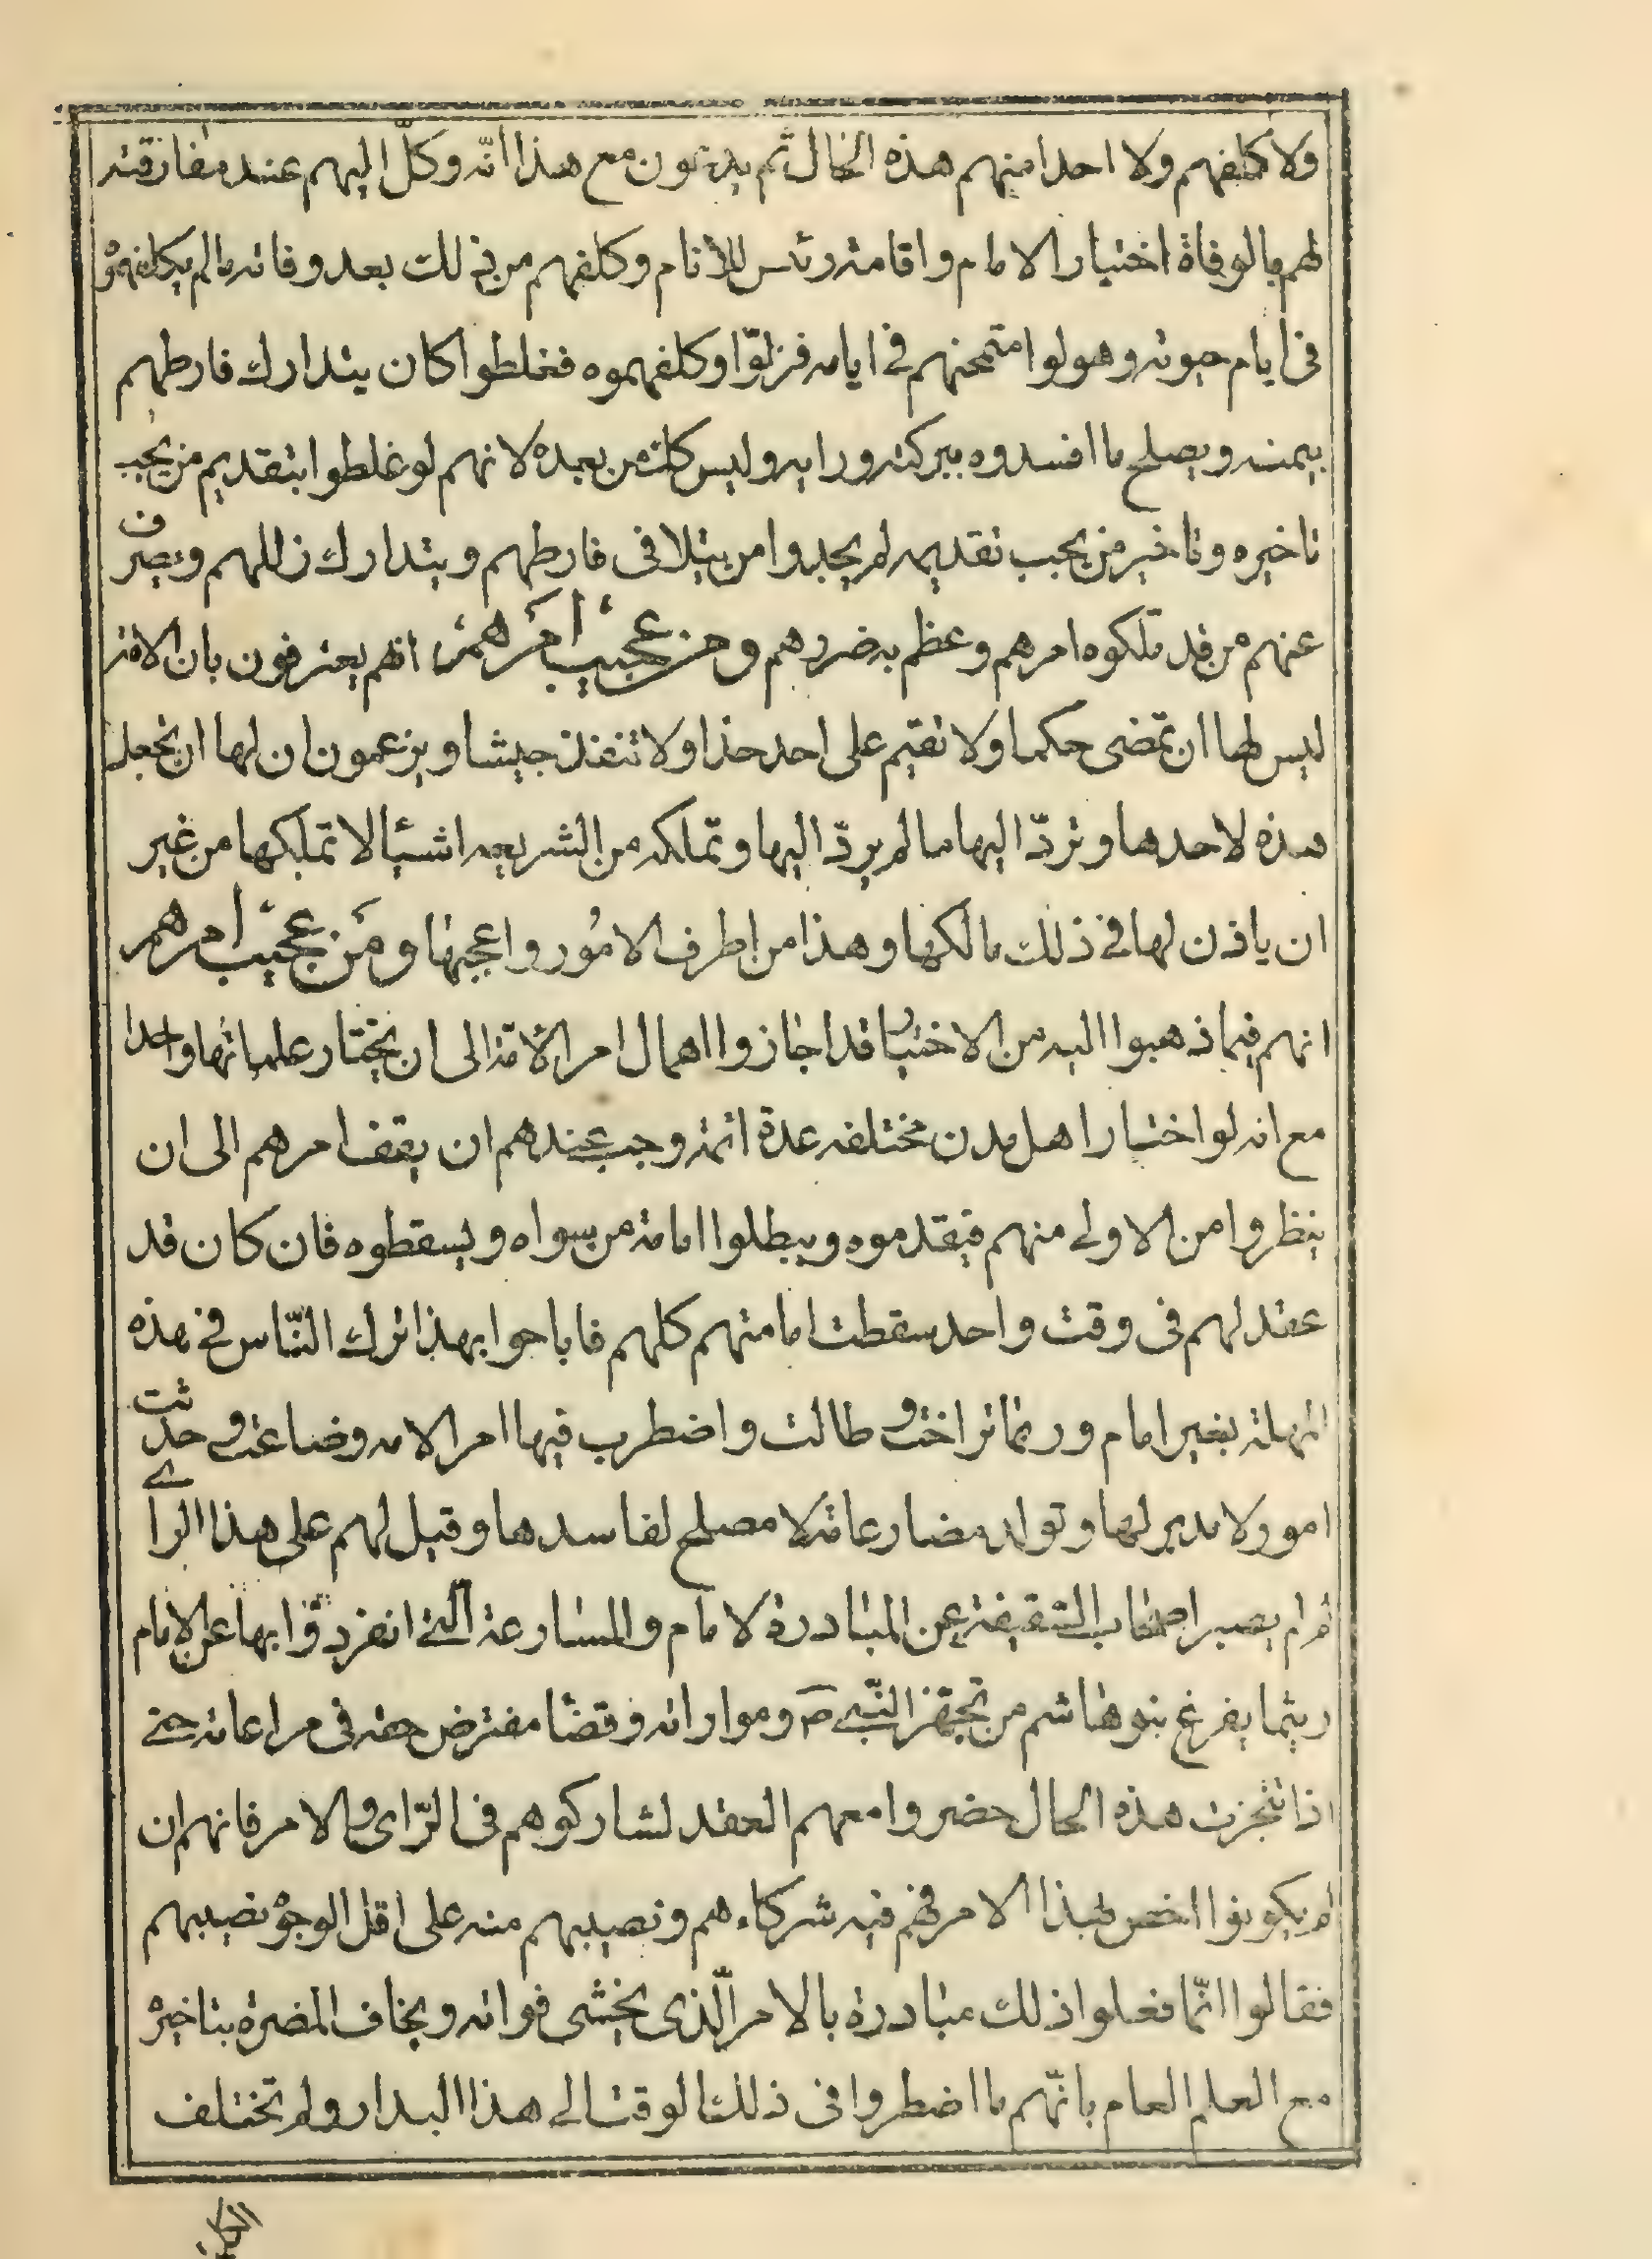 ولا كلفهم ولا احدا منهم هذه الحال ثم يدعون مع هذا انّه وكلّ اليهم عند مفارقته
لهم بالوفاة اختيار الامام واقامة رئس للانام وكلفهم من ذلك بعد وفاته ما لم يكلفهمو
فى ايام حيوته وهو لو امتحنهم في ايامه فزلّوا وكلفهموه فغلطوا كان يتدارك فارطهم
بيمنه ويصلح ما افسدوه ببركته ورايه وليس كك من بعده لانهم لو غلطوا بتقديم من يجب
تاخيره وتاخير من يجب تقديمه لم يجدوا من يتلافى فارطهم ويتدارك زللهم ويصرف
عنهم من قد ملكوه امرهم وعظم به ضررهم ومن عجيب امرهم انهم يعترفون بان الامة
ليس لها ان تمضى حكما ولا تقيم على احد حدا ولا تنفذ جيشا ويزعمون ان لها ان تجعل
هذه لاحدها وتردّ اليها ما لم يردّ اليها وتملكه من الشريعه اشيئا لا تملكها من غير
ان ياذن لها في ذلك مالكها وهذا من اطرف الامور واعجبها ومن عجيب امرهم
انهم فيما ذهبوا اليه من الاختيار قد اجازوا اهمال امر الامّة الى ان يختار علمائها واحدا
مع انه لو اختار اهل مدن مختلفه عدة ائمة وجب عندهم ان يقف امرهم الى ان
ينظروا من الاولى منهم فيقدموه ويبطلوا امامة من سواه ويسقطوه فان كان قد
عقد لهم فى وقت واحد سقطت امامتهم كلهم فاباحوا بهذا ترك النّاس في هذه
المهلة بغير امام وربما تراخت وطالت واضطرب فيها امر الامه وضاعت وحدثت
امور لا مدبر لها وتولد مضار عامة لا مصلح لفاسدها وقيل لهم على هذا الراى
لم لم يصبر اصحاب السّقيفة عن المبادرة لامام والمسارعة الّتى انفردوا بها عن الامام
ريثما يفرغ بنو هاشم من تجهيز النّبى ص وموارانه وقضا مفترض حقه فى مراعاته حتى
اذا نجزت هذه الحال حضروا معهم العقد لشاركوهم فى الرّاى والامر فانهم ان
لم يكونوا اخص بهذا الامر فهم فيه شركاءهم ونصيبهم منه على اقل الوجوه نصيبهم
فقالوا انّما فعلوا ذلك مبادرة بالامر الّذى يخشى فواته ويخاف المضرة بتاخيره
مع العلم العام بانّهم ما اضطروا فى ذلك الوقت الى هذا البدار ولم تختلف